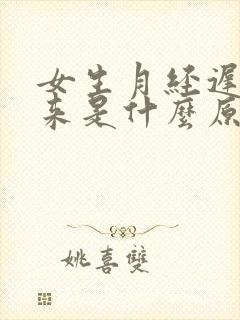 女生月经遲
来是什麼原
姚喜雙